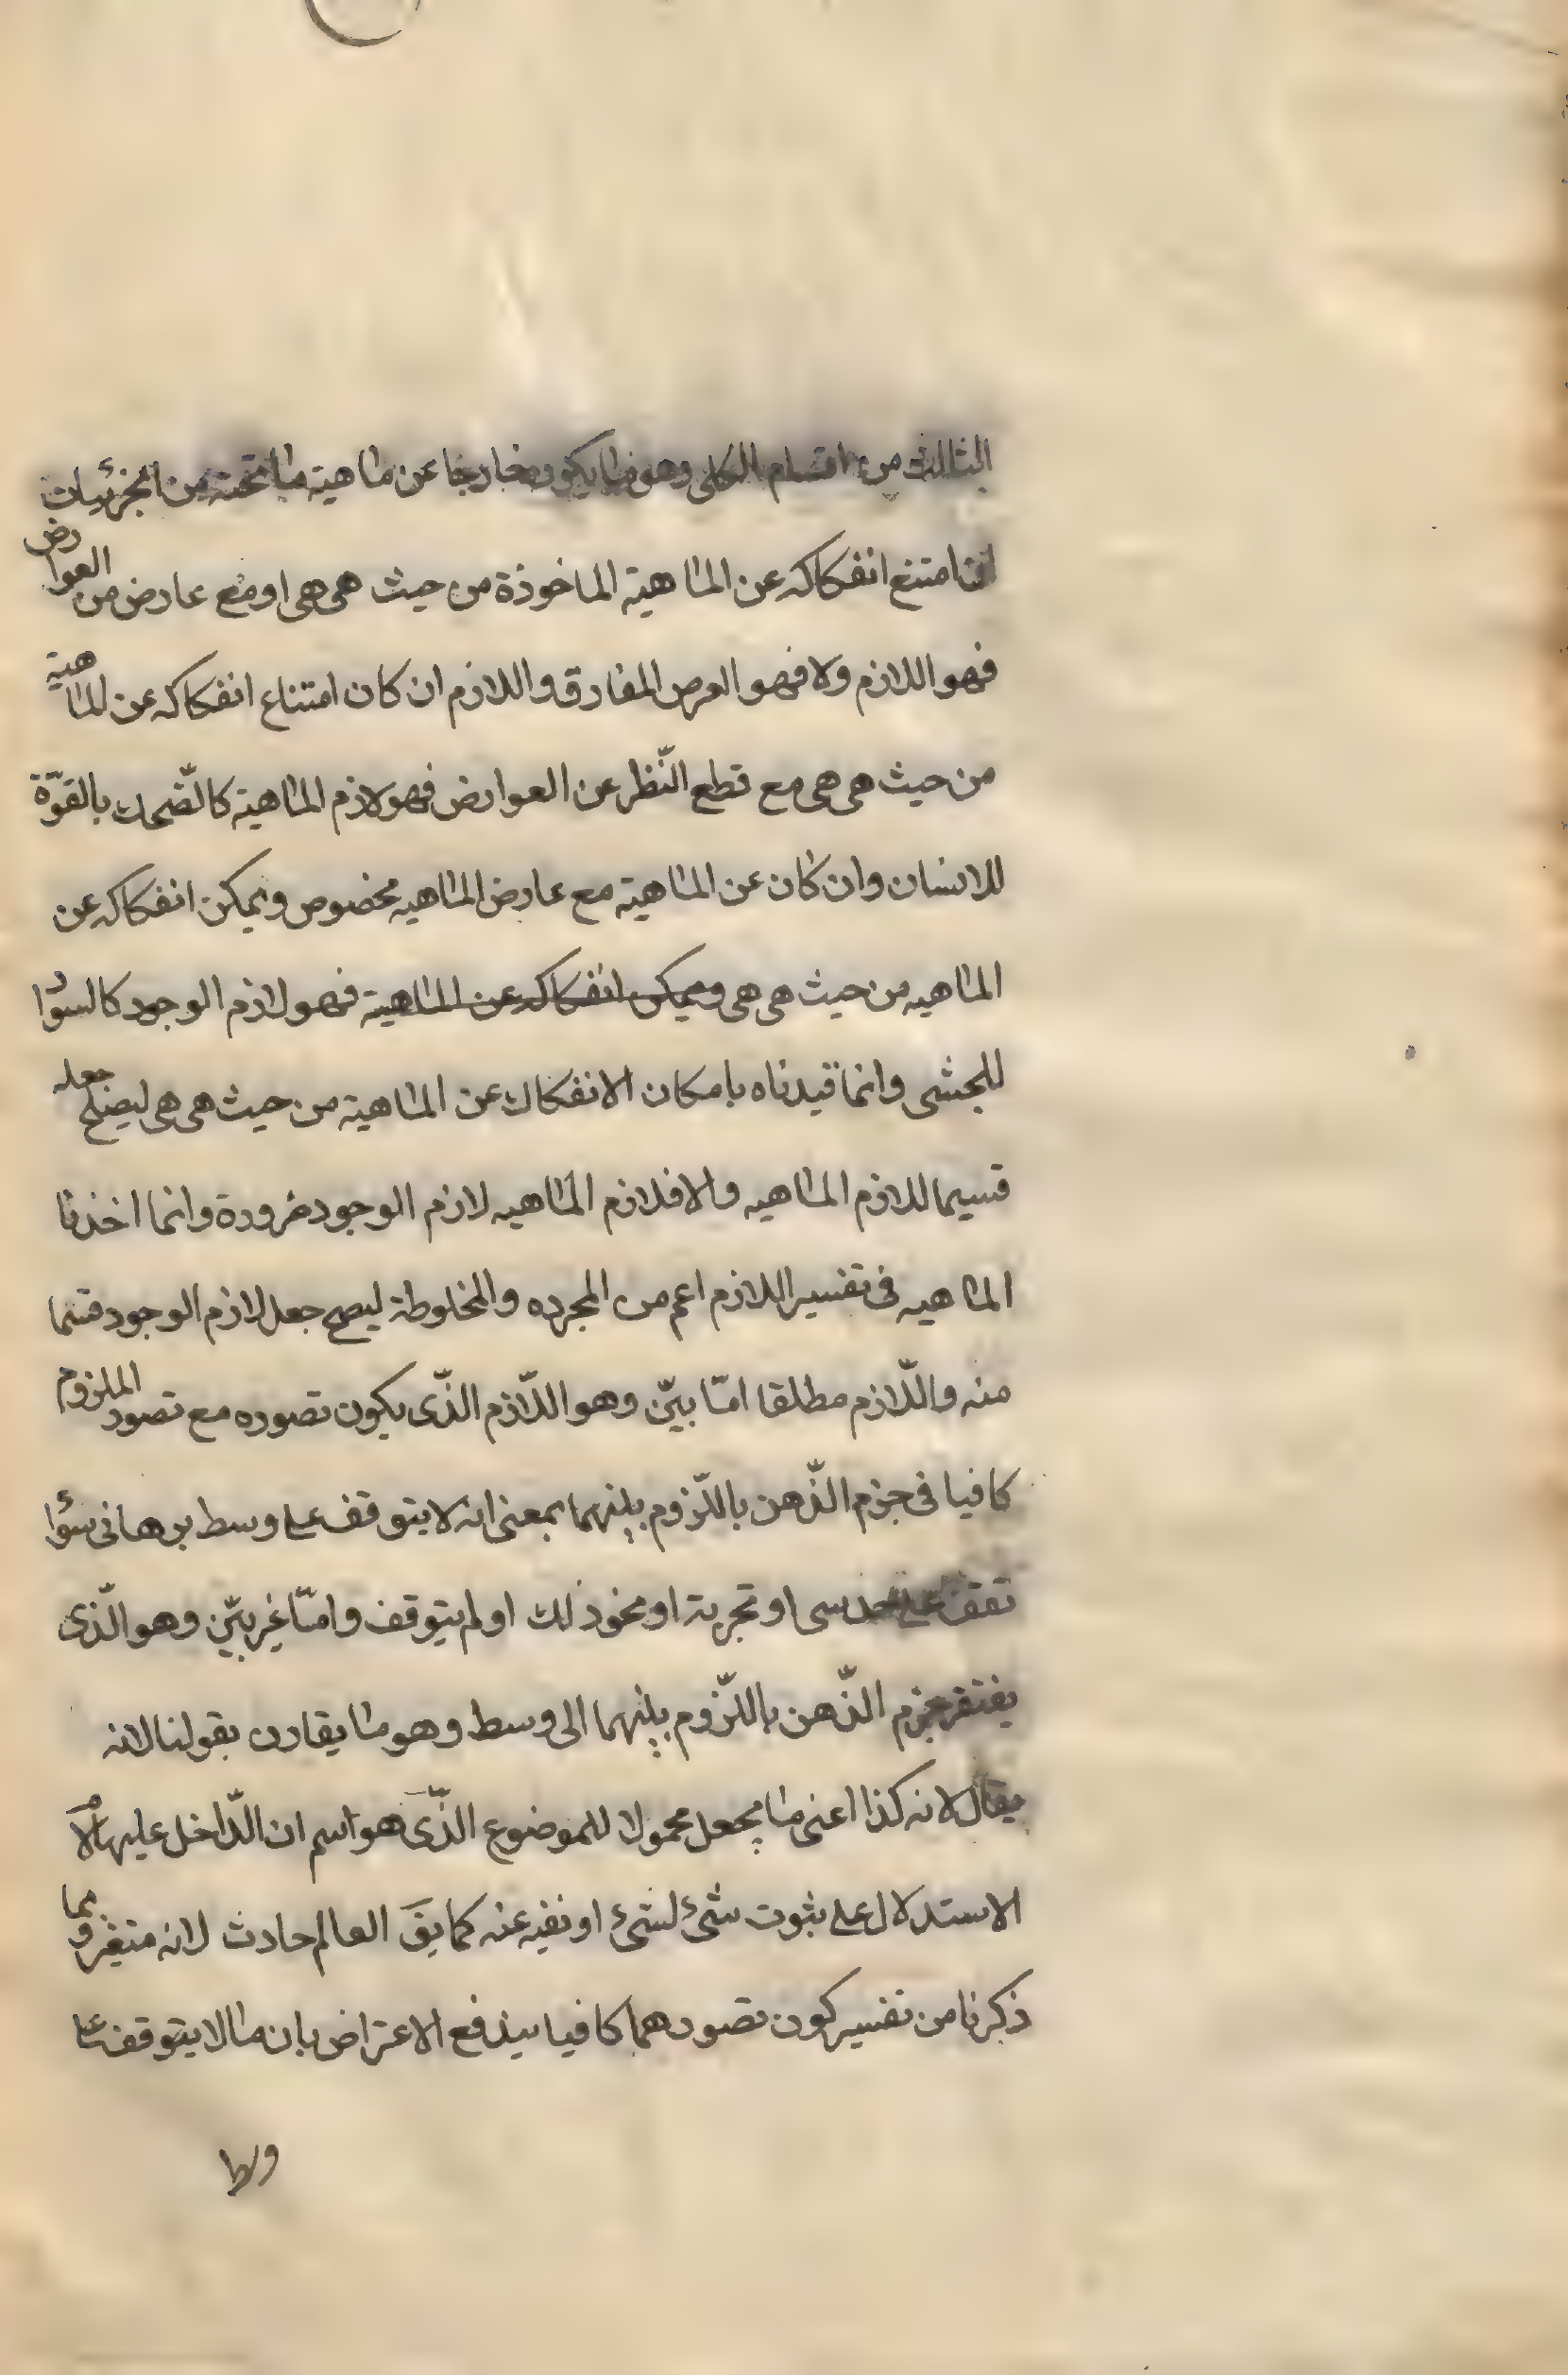 الثالث من اقسام الكلى وهو ما يكون خارجا عن ماهية ما تحته من الجزئيات
امتنع انفكاكه عن الماهية الماخوذة من حيث هى هى او مع عارض من العوارض
فهو اللازم ولا فهو العرض المفارق واللازم ان كان امتناع انفكاكه عن الماهية
من حيث هى هى مع قطع النّظر عن العوارض فهو لازم الماهية كالضّحك بالقوّة
للانسان وان كان عن الماهية مع عارض الماهيه مخصوص ويمكن انفكاكه عن
الماهيه من حيث هى هى ويمكن انفكاكه عن الماهية فهو لازم الوجود كالسواد
للجشى وانما قيدناه بامكان الانفكاك عن الماهية من حيث هى هى ليصلح جعله
قسيما للازم الماهيه والا فلازم الماهيه لازم الوجود ضرورة وانما اخذنا
الماهيه فى تفسير اللازم اعم من المجرده والمخلوطة ليصح جعل لازم الوجود قسما
منه واللّازم مطلقا امّا بيّن وهو اللّازم الذّى يكون تصوره مع تصور الملزوم
كافيا فى جزم الذّهن باللّزوم بينهما بمعنى انه لا يتوقف على وسط برهانى سؤا
تقف على حدسى او تجربة او نحو ذلك او لم يتوقف وامّا غير بيّن وهو الّذى
يفتقر جزم الذّهن باللّزوم بينهما الى وسط وهو ما يقارن بقولنا لانه
يقال لانه كذا اعنى ما يجعل محمولا للموضوع الذّى هو اسم ان الدّاخل عليها لام
الاستدلال على ثبوت شئ لشئ او نفيه عنه كما يقَ العالم حادث لانه متغير وبما
ذكرنا من تفسير كون تصورهما كافيا يندفع الاعتراض بان ما لا يتوقف على
وسط